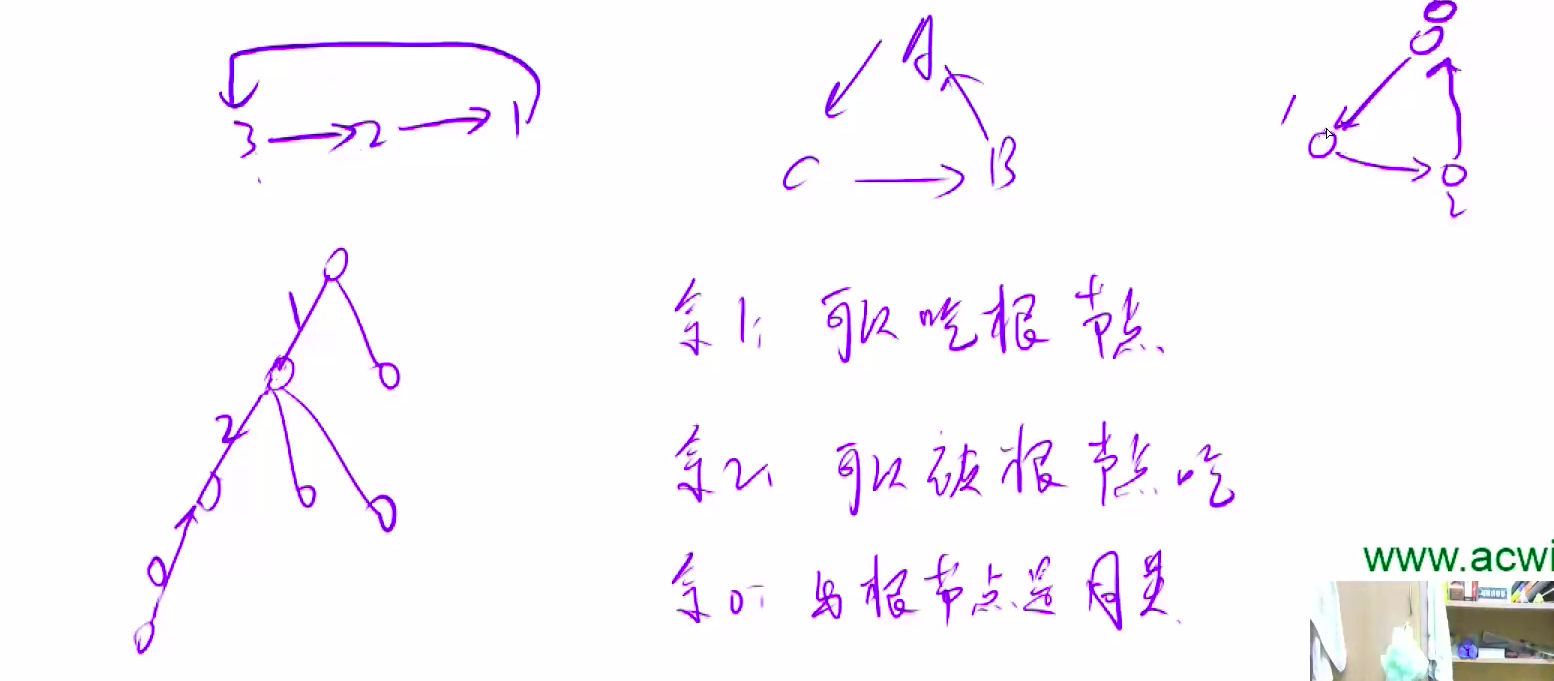 3 → 2 → 1
A
C → B
1
2
1
2
余1: 可以吃根节点
余2: 可以被根节点吃
余0: 与根节点是同类
www.acwi